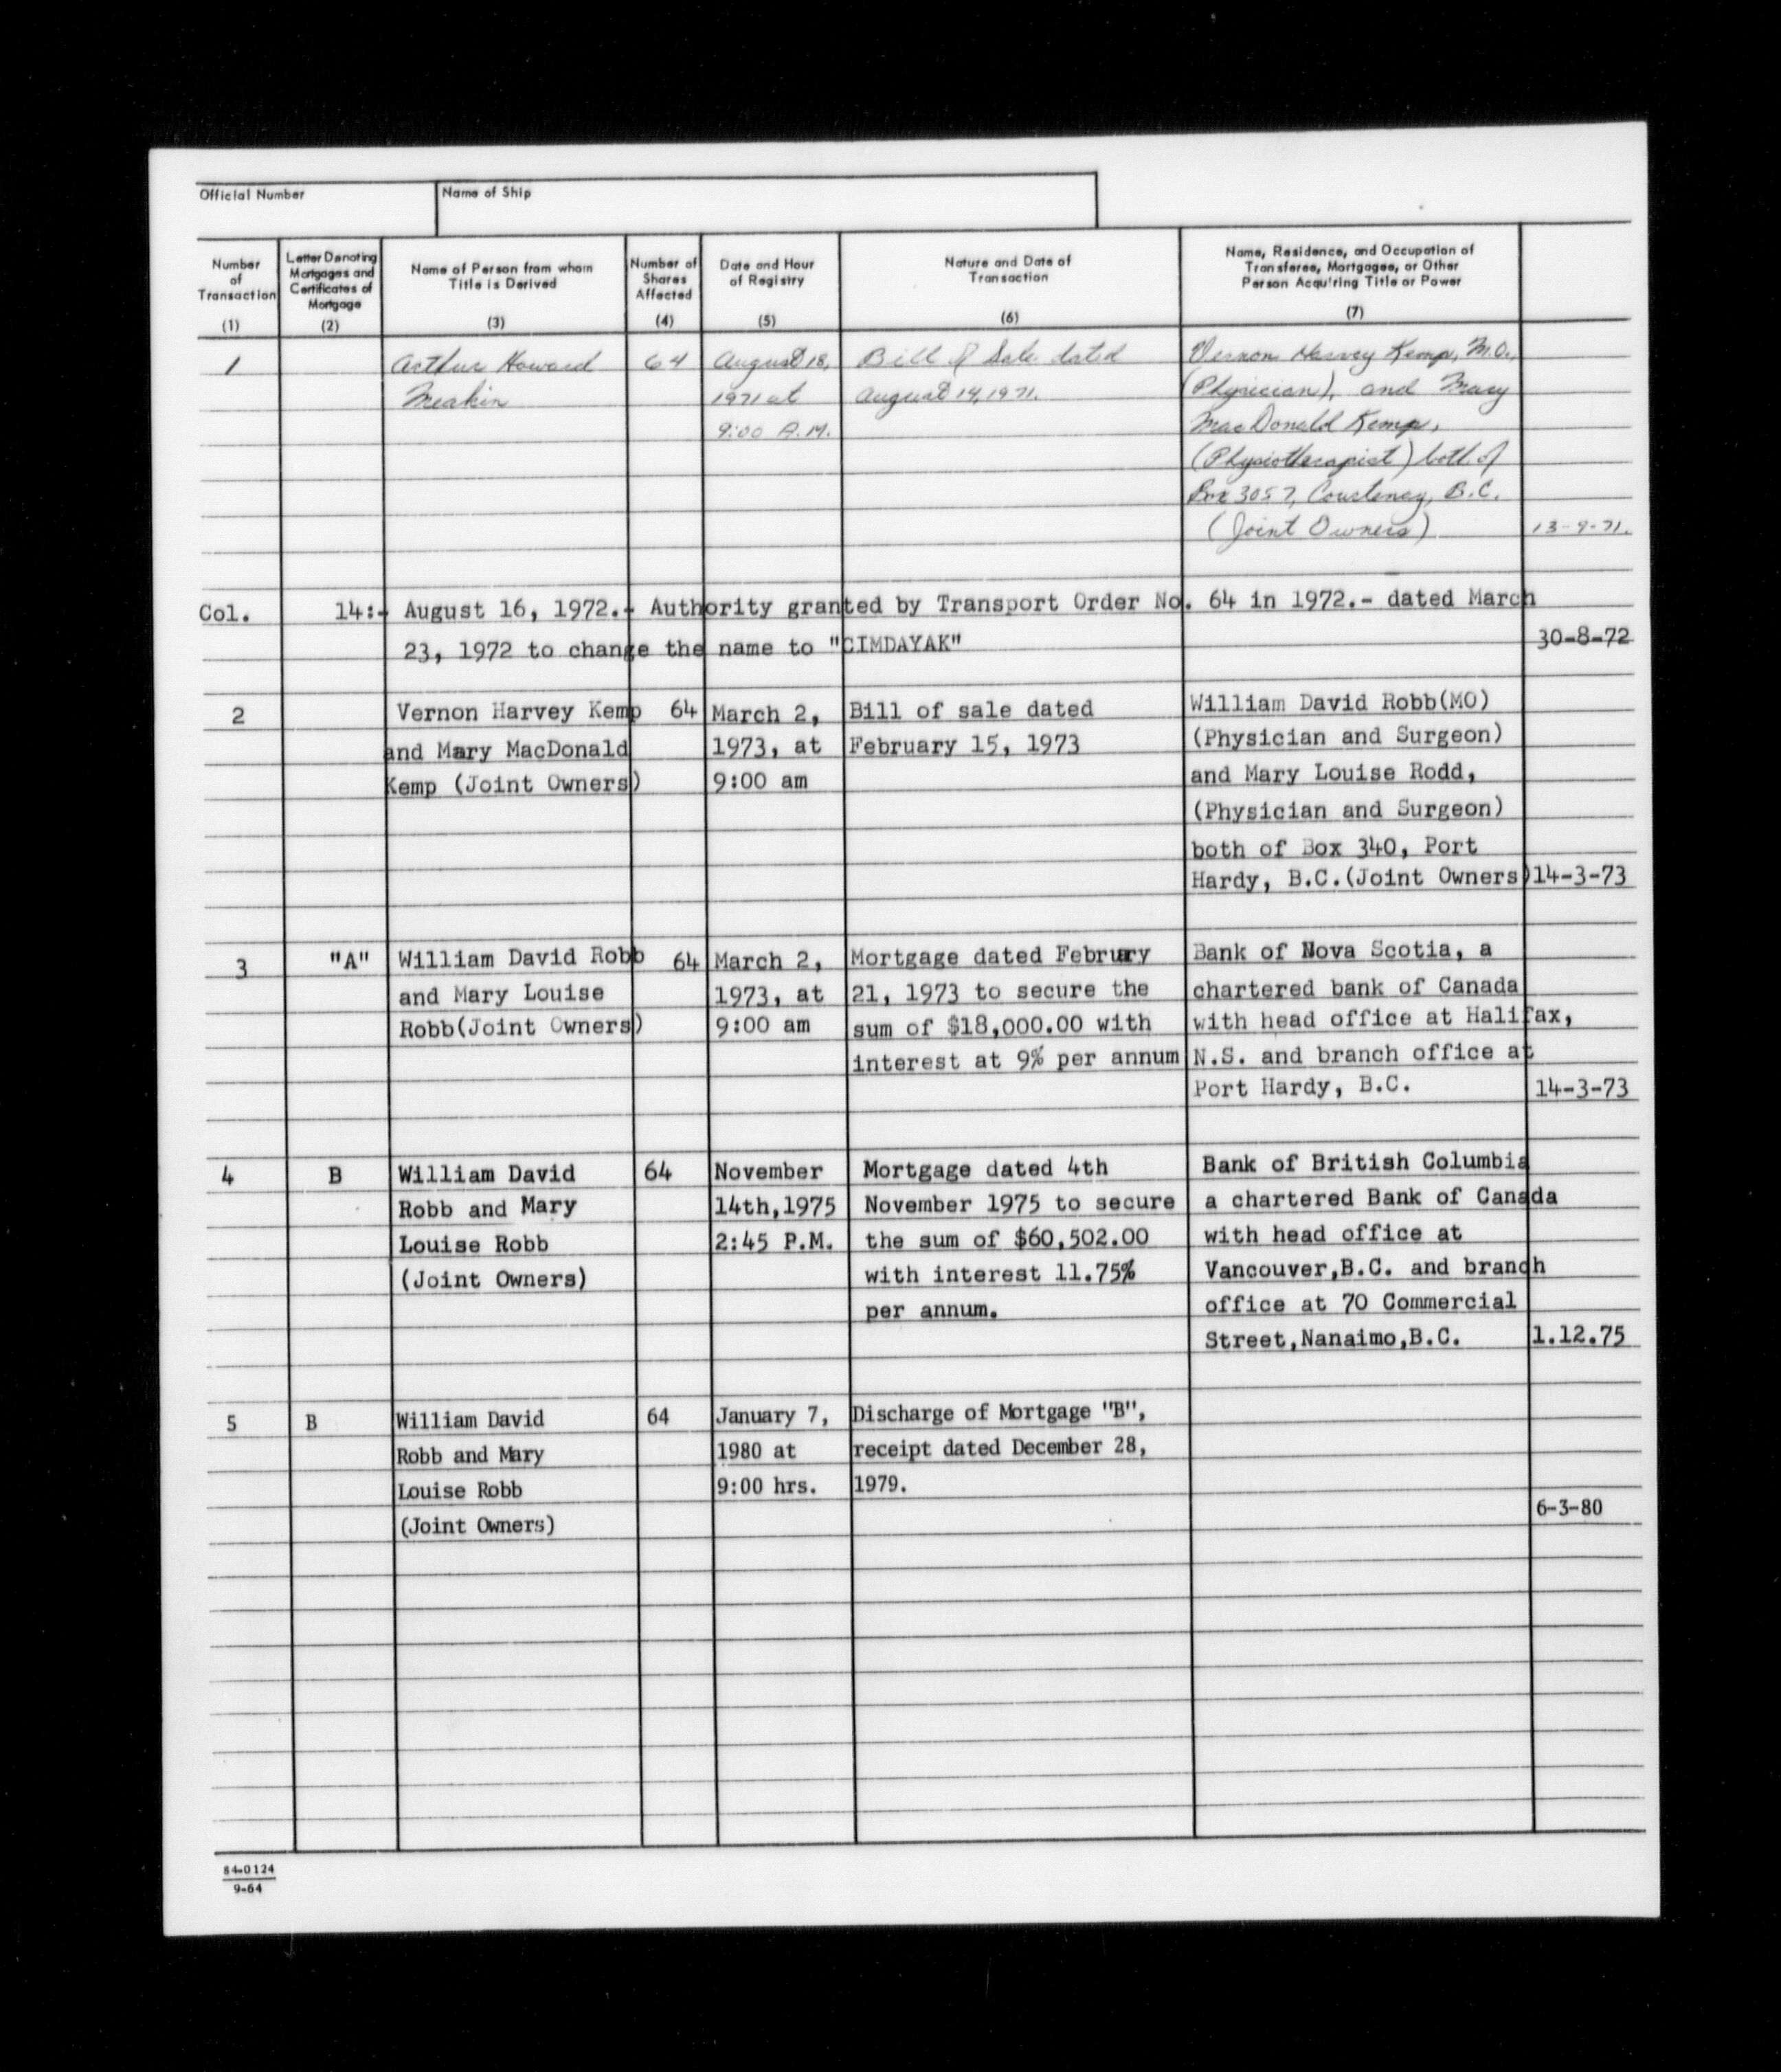 Official Number
Name of Ship
Number of Transaction (1)
Letter Denoting Mortgages and Certificates of Mortgage (2)
Name of Person from whom Title is Derived (3)
Number of Shares Affected (4)
Date and Hour of Registry (5)
Nature and Date of Transaction (6)
Name, Residence, and Occupation of Transferee, Mortgagee, or Other Person Acquiring Title or Power (7)
1 Arthur Howard 64 August 18, Bill of Sale dated Vernon Harvey Kemp, M.D.,
Meakin 1971 at August 14, 1971. (Physician), and Mary
9:00 A.M. MacDonald Kemp,
(Physiotherapist) both of
Box 3057, Courtenay, B.C.
(Joint Owners) 13-9-71.
Col. 14:- August 16, 1972.- Authority granted by Transport Order No. 64 in 1972.- dated March
23, 1972 to change the name to "CIMDAYAK" 30-8-72
2 Vernon Harvey Kemp 64 March 2, Bill of sale dated William David Robb(MO)
and Mary MacDonald 1973, at February 15, 1973 (Physician and Surgeon)
Kemp (Joint Owners) 9:00 am and Mary Louise Rodd,
(Physician and Surgeon)
both of Box 340, Port
Hardy, B.C.(Joint Owners) 14-3-73
3 "A" William David Robb 64 March 2, Mortgage dated Februry Bank of Nova Scotia, a
and Mary Louise 1973, at 21, 1973 to secure the chartered bank of Canada
Robb(Joint Owners) 9:00 am sum of $18,000.00 with with head office at Halifax,
interest at 9% per annum N.S. and branch office at
Port Hardy, B.C. 14-3-73
4 B William David 64 November Mortgage dated 4th Bank of British Columbia
Robb and Mary 14th,1975 November 1975 to secure a chartered Bank of Canada
Louise Robb 2:45 P.M. the sum of $60,502.00 with head office at
(Joint Owners) with interest 11.75% Vancouver,B.C. and branch
per annum. office at 70 Commercial
Street,Nanaimo,B.C. 1.12.75
5 B William David 64 January 7, Discharge of Mortgage "B",
Robb and Mary 1980 at receipt dated December 28,
Louise Robb 9:00 hrs. 1979.
(Joint Owners) 6-3-80
84-0124
9-64